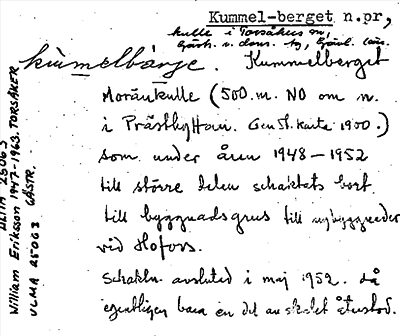 Kummel-berget n.pr,
kulle i Torsåkers sn,
Gästr. n. doms. tg, Gävleb. län.
kùmelbárje. Kummelberget
Moränkulle (500 m. NO om n.
i Prästhyttan. Gen.St. karta 1900.)
som under åren 1948-1952
till större delen schaktats bort
till byggnadsgrus till nybyggnader
vid Hofors.
Schaktn. avslutad i maj 1952. då
egentligen bara en del av skalet återstod.
ULMA 25063
William Eriksson 1947-1963. TORSÅKER
ULMA 25063 GÄSTR.